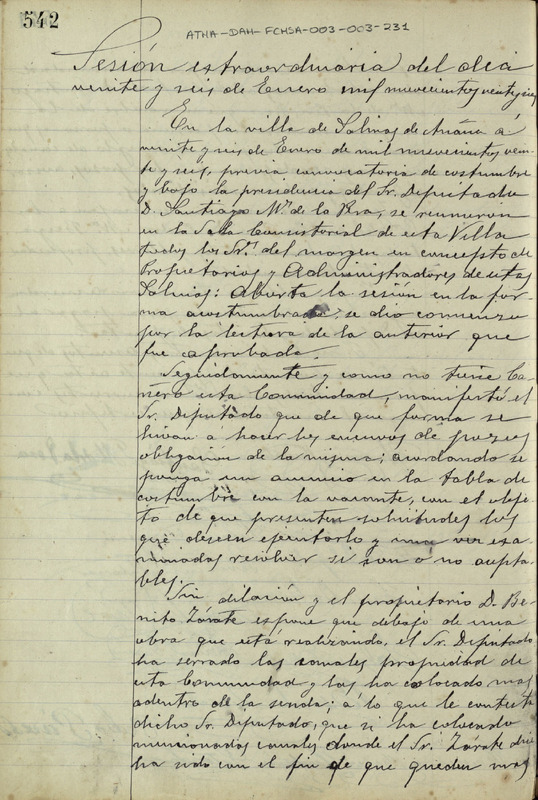 542
ATHA-DAH-FCHSA-003-003-231
Sesión extraordinaria del dia
veinte y seis de Enero mil nuevecientos veinte y seis
En la villa de Salinas de Añana á
veinte y seis de Enero de mil nuevecientos vein-
te y seis, previa convocatoria de costumbre
y bajo la presidencia del Sr. Diputado
D. Santiago Mª de la Pra, se reunieron
en la Sala Consistorial de esta Villa
todos los Srs. del margen en concepto de
Propietarios y Administradores de estas
Salinas: Abierta la sesión en la for-
ma acostumbrada, se dio comienzo
por la lectura de la anterior que
fue aprobada.
Seguidamente y como no tiene Ca-
ñero esta Comunidad, manifestó el
Sr. Diputado que de que forma se
hivan á hacer los envuos de pozos
obligacion de la misma; acordando se
ponga un anuncio en la tabla de
costumbre con la vacante, con el obje-
to de que presenten solicitudes los
que deseen ejercitarlo y una vez exa-
minadas resolver si son o no acepta-
bles.
Sin dilación y el propietario D. Be-
nito Zárate espone que debajo de una
obra que está realizando, el Sr. Diputado
ha serrado las canales propiedad de
esta Comunidad y las ha colocado mas
adentro de la senda; á lo que le contesta
dicho Sr. Diputado, que si ha colocado
mencionadas canales donde el Sr. Zárate dice
ha sido con el fin de que queden mas